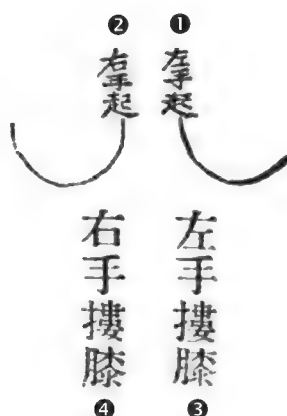 ❶
左手起
❷
右手起
左手摟膝
❸
右手摟膝
❹